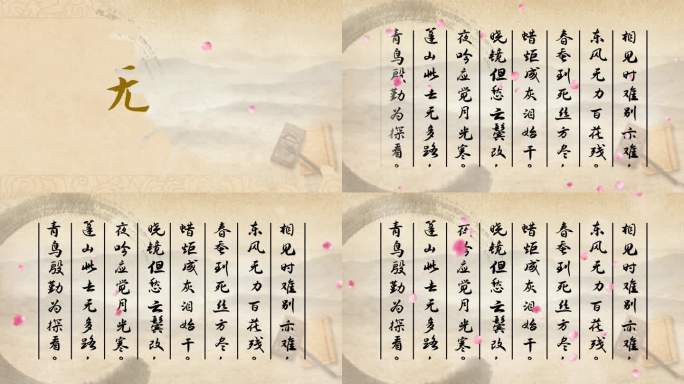 无
相见时难别亦难，
东风无力百花残。
春蚕到死丝方尽，
蜡炬成灰泪始干。
晓镜但愁云鬓改，
夜吟应觉月光寒。
蓬山此去无多路，
青鸟殷勤为探看。
相见时难别亦难，
东风无力百花残。
春蚕到死丝方尽，
蜡炬成灰泪始干。
晓镜但愁云鬓改，
夜吟应觉月光寒。
蓬山此去无多路，
青鸟殷勤为探看。
相见时难别亦难，
东风无力百花残。
春蚕到死丝方尽，
蜡炬成灰泪始干。
晓镜但愁云鬓改，
夜吟应觉月光寒。
蓬山此去无多路，
青鸟殷勤为探看。